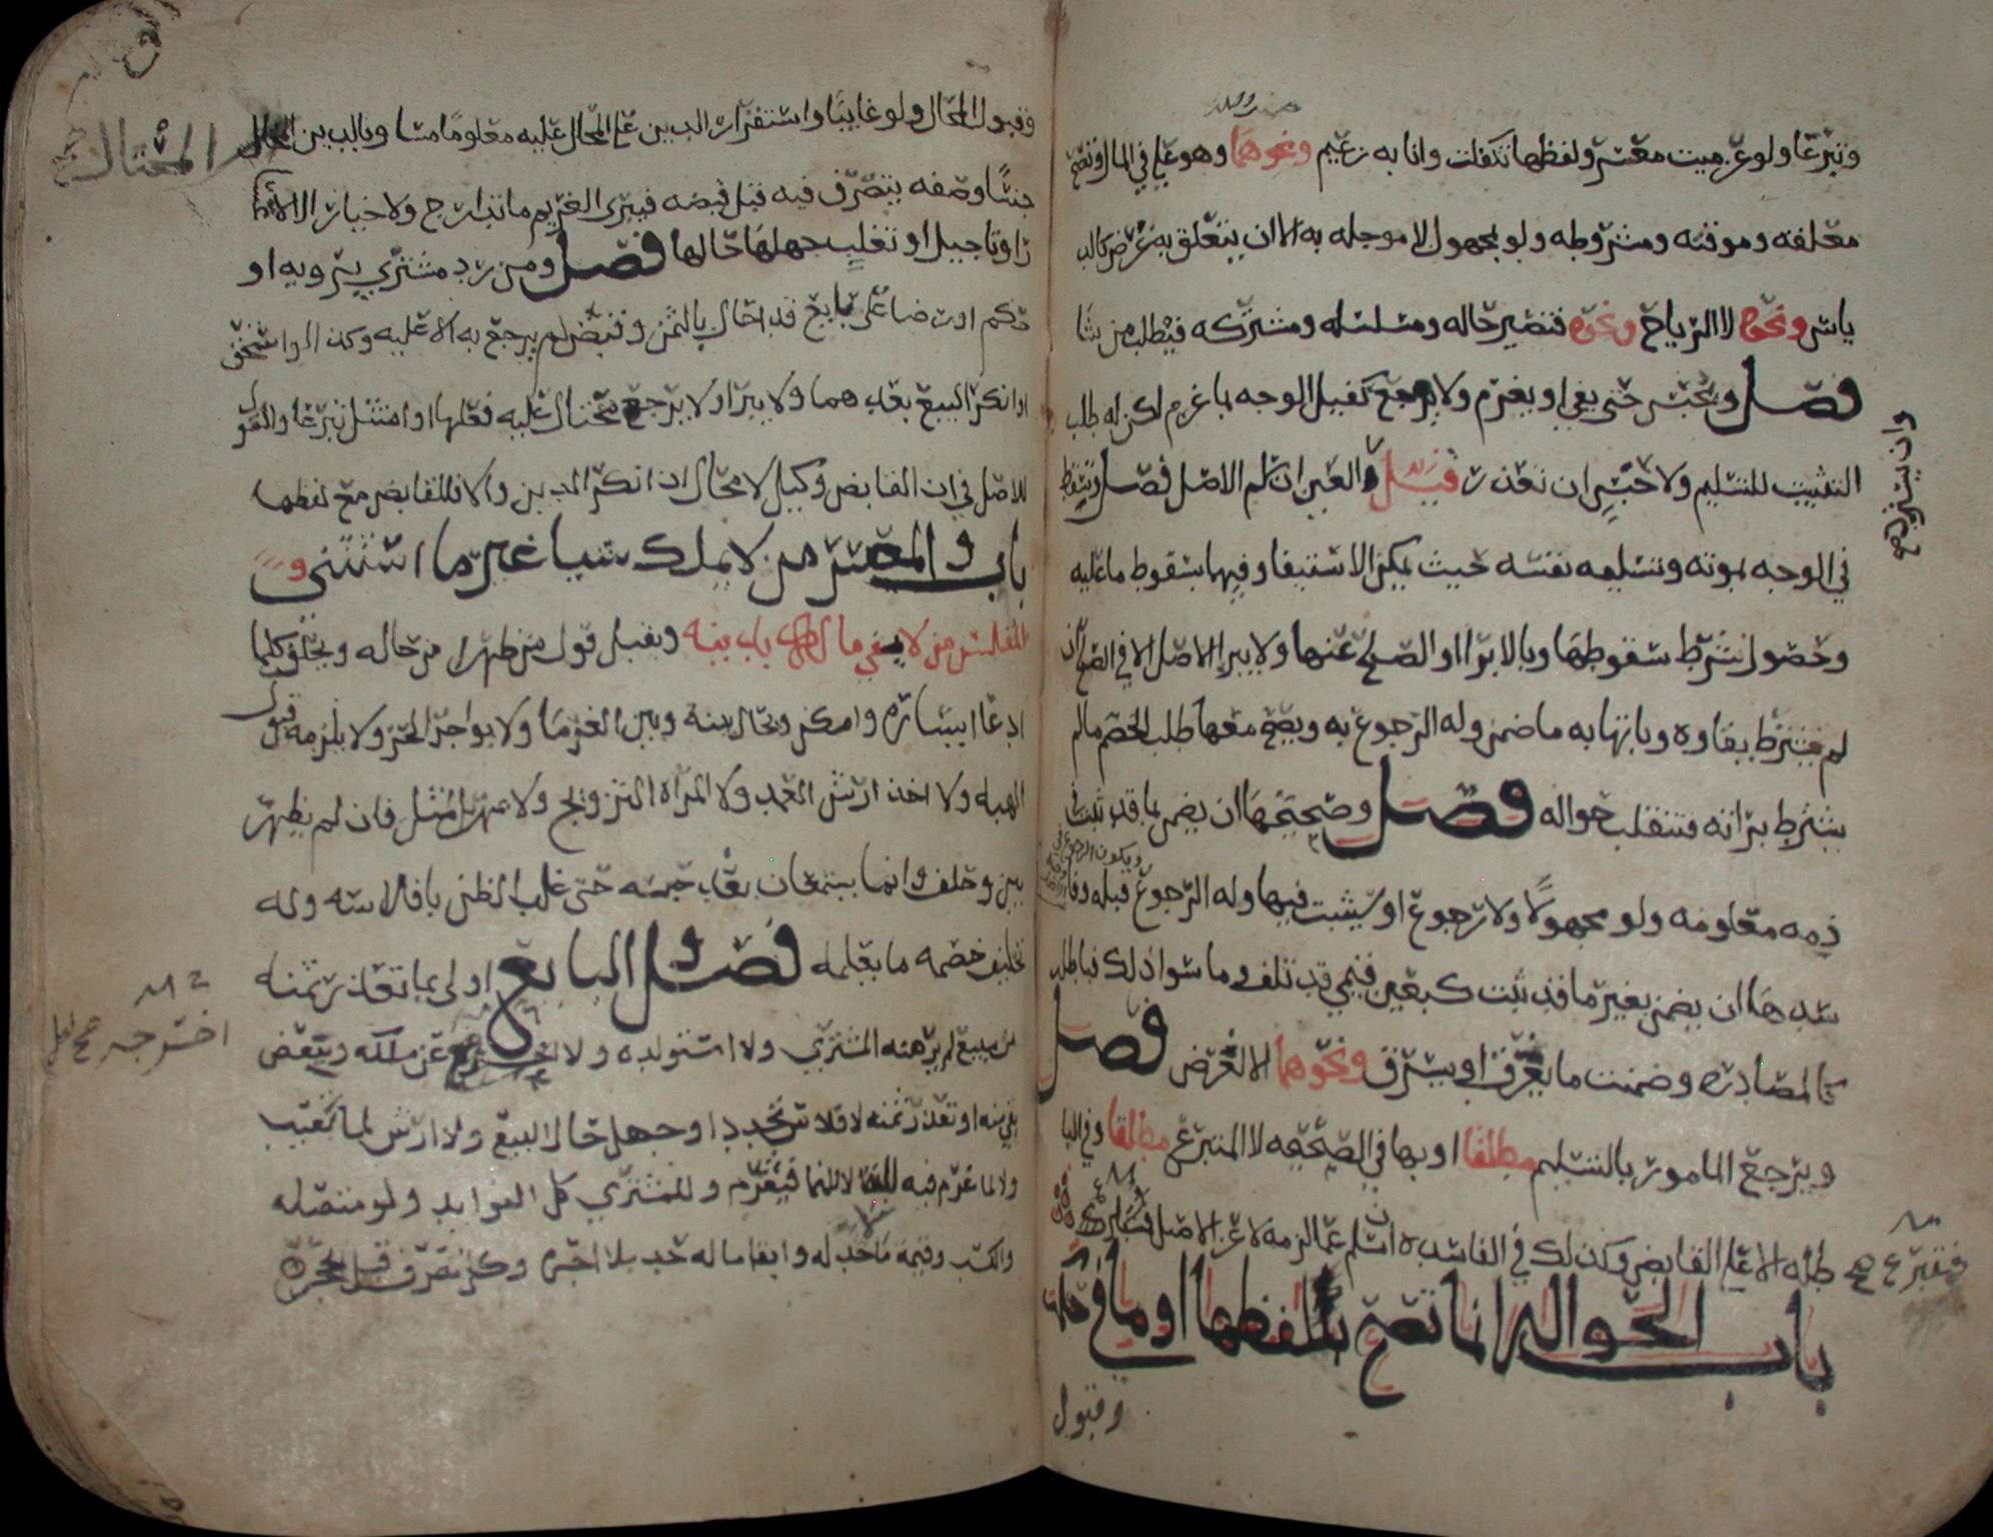 وتبرعا ولو عن ميت معسر ولفظها تكفلت وانا به زعيم ونحوهما وهو علي في المال وتصح
معلقه وموقته ومشروطه ولو بمجهول لا موجله به الا ان يتعلق به غرض كالد
ياس ونحوه لا الرياح ونحوه فتصير حاله ومسلسله ومشتركه فيطلب من شا
فصل ويحبس حتى يفي او يغرم ولا يرجع كفيل الوجه بما غرم لكن له طلب
التثبيت للتسليم ولا حبس ان تعذر قيل والعين ان سلم الاصل فصل وتسقط
وان يسترجع
في الوجه بموته وتسليمه نفسه حيث يمكن الاستيفا وفيهما بسقوط ما عليه
وحصول شرط سقوطها وبالابرا او الصلح عنها ولا يبرا الاصل الا في الصلح ان
لم يشترط بقاوه وباتهابه ما ضمن وله الرجوع به ويصح معها طلب الخصم ما لم
يشترط براته فتنقلب حواله فصل وصحيحها ان يضمن بما قد ثبت في
ذمه معلومه ولو مجهولا ولا رجوع او سيثبت فيها وله الرجوع قبله وفا
سدها ان يضمن بغير ما قد ثبت كبعين قيمي قد تلف وما سوا ذلك فباطله
كالمصادره وضمنت ما يغرق او يسرق ونحوهما الا لغرض فصل
ويرجع المامور بالتسليم مطلقا او بها في الصحيحه لا المتبرع مطلقا وفي البا
طله الا على القابض وكذلك في الفاسده ان سلم عما لزمه لا عن الاصل فمتبرع
فمتبرع صح
باب الحواله انما تصح بلفظها او ما في حكمه
وقبول
وقبول المحال ولو غايبا واستقرار الدين على المحال عليه معلوما مساويا لدين المحال
المحتال
جنسا وصفه يتصرف فيه قبل قبضه فيبرى الغريم ما تدارج ولا خيار الا لاعسا
ر او تاجيل او تغلب جهلها حالها فصل ومن رد مشترى برويه او
حكم او رضا على بايع قد احال بالثمن وقبض لم يرجع به الا عليه وكذا لو استحق
او انكر البيع بعدهما ولا يبرا ولا يرجع محتال عليه فعلها او امتثل تبرعا والقول
للاصل في ان القابض وكيل لا محال اذا انكر الدين والا فللقابض مع لفظها
باب والمعسر من لا يملك شيا غير ما استثني و
المفلس من لا يفي ماله بدينه ويقبل قول من ظهرا من حاله ويحلف كلما
ادعا ايساره وامكن ويحال بينه وبين الغرما ولا يواجر الحر ولا يلزمه قبول
الهبه ولا اخذ ارش العمد ولا المراه التزويج ولا بمهر المثل فان لم يظهر
بين وحلف وانما يسمعان بعد حبسه حتى غلب الظن بافلاسه وله
تحليف خصمه ما يعلمه فصل والبايع اولى بما تعذر ثمنه
من مبيع لم يرهنه المشتري ولا استولده ولا اخرجه عن ملكه وببعض
اخرجه صح اصل
بقي منه او تعذر ثمنه لافلاس تجدد او جهل حال البيع ولا ارش لما تعيب
ولا لما غرم فيه للبقا لا للنما فيغرم وللمشتري كل الفوايد ولو متصله
والكسب وقيمه ما لا حد له وابقا ما له حد بلا اجره وكل تصرف قبل الحجر